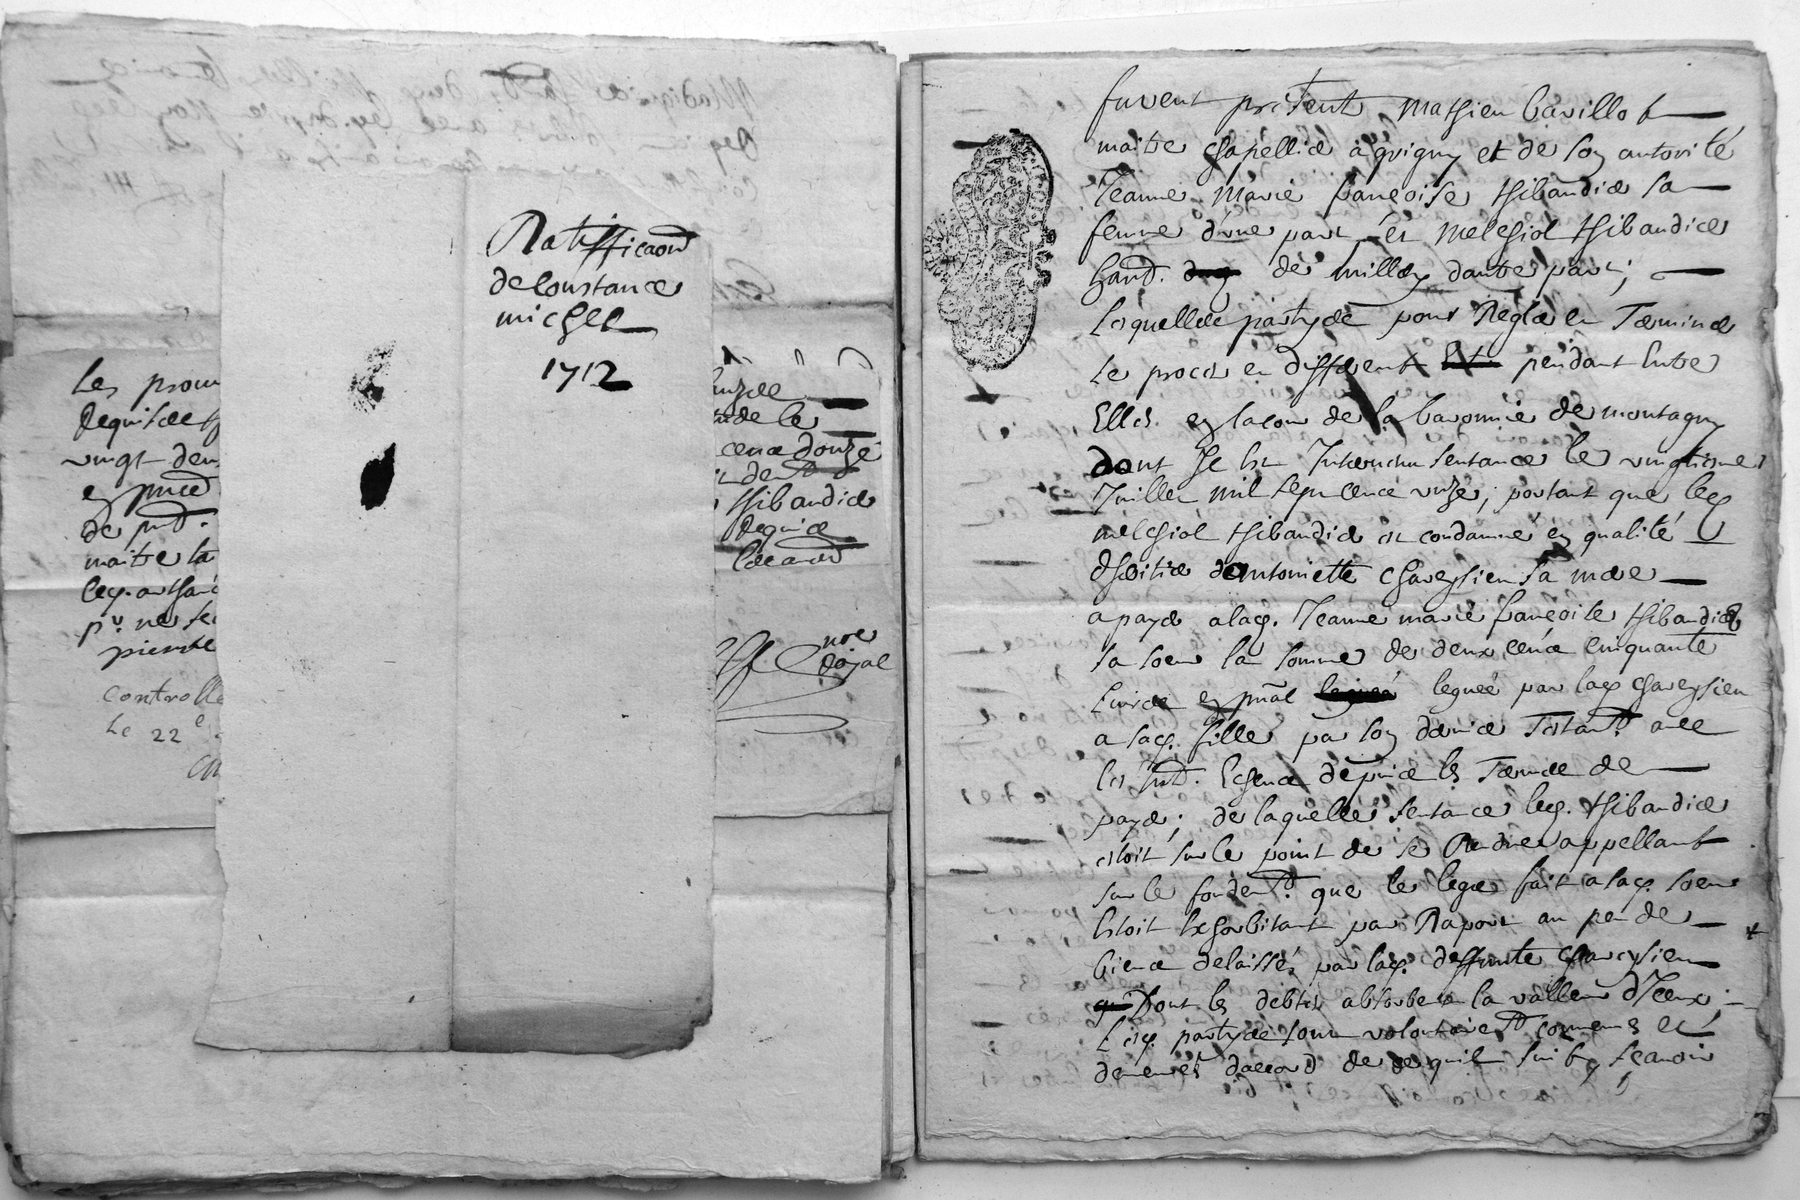 Ratifficaon
de Constance
michel
1712
Les prem
Requis
vingt deux
de pnt.
maitre
pierre
controlle
Le 22e
de le
cens douze
thibaudier
Requis
nore
Royal
furent present mathieu Cavillot
maitre chapellier a grigny et de son autorité
Jeanne Marie françoise thibaudier sa
femme d'une part et melchiol thibaudier
hant. de millery dautre part;
Lesquelles partyes pour Regler en Terminer
Le procès en different pendant Entre
Elles en lacour de la baronnie de montagny
dont il est Intervenu sentance le vingtieme
Juillet mil sept cens unze, portant que led
melchiol thibaudier est condamné en qualité
dheritier dantoniette chareysieu sa mere
a payer a lad. Jeanne marie françoise thibaudier
sa soeur la somme de deux cens cinquante
Livres en pnal leguée par lad chareysieu
a lad. fille par son dernier Testant avec
les Intt. Escheus depuis les Termes de
payer; de laquelle sentance led. thibaudier
estoit sur le point de se Rendre appellant
sur le fondemt. que le legat fait a lad. soeur
Estoit Exhorbitant par Raport au peu de
biens delaissés par lad. deffunte chareysieu
Dont les debtes absorbent la valleur d'Iceux;
Lesd. partyes sont volontairemt convenues et
demeurés daccord de de quil suit scavoir